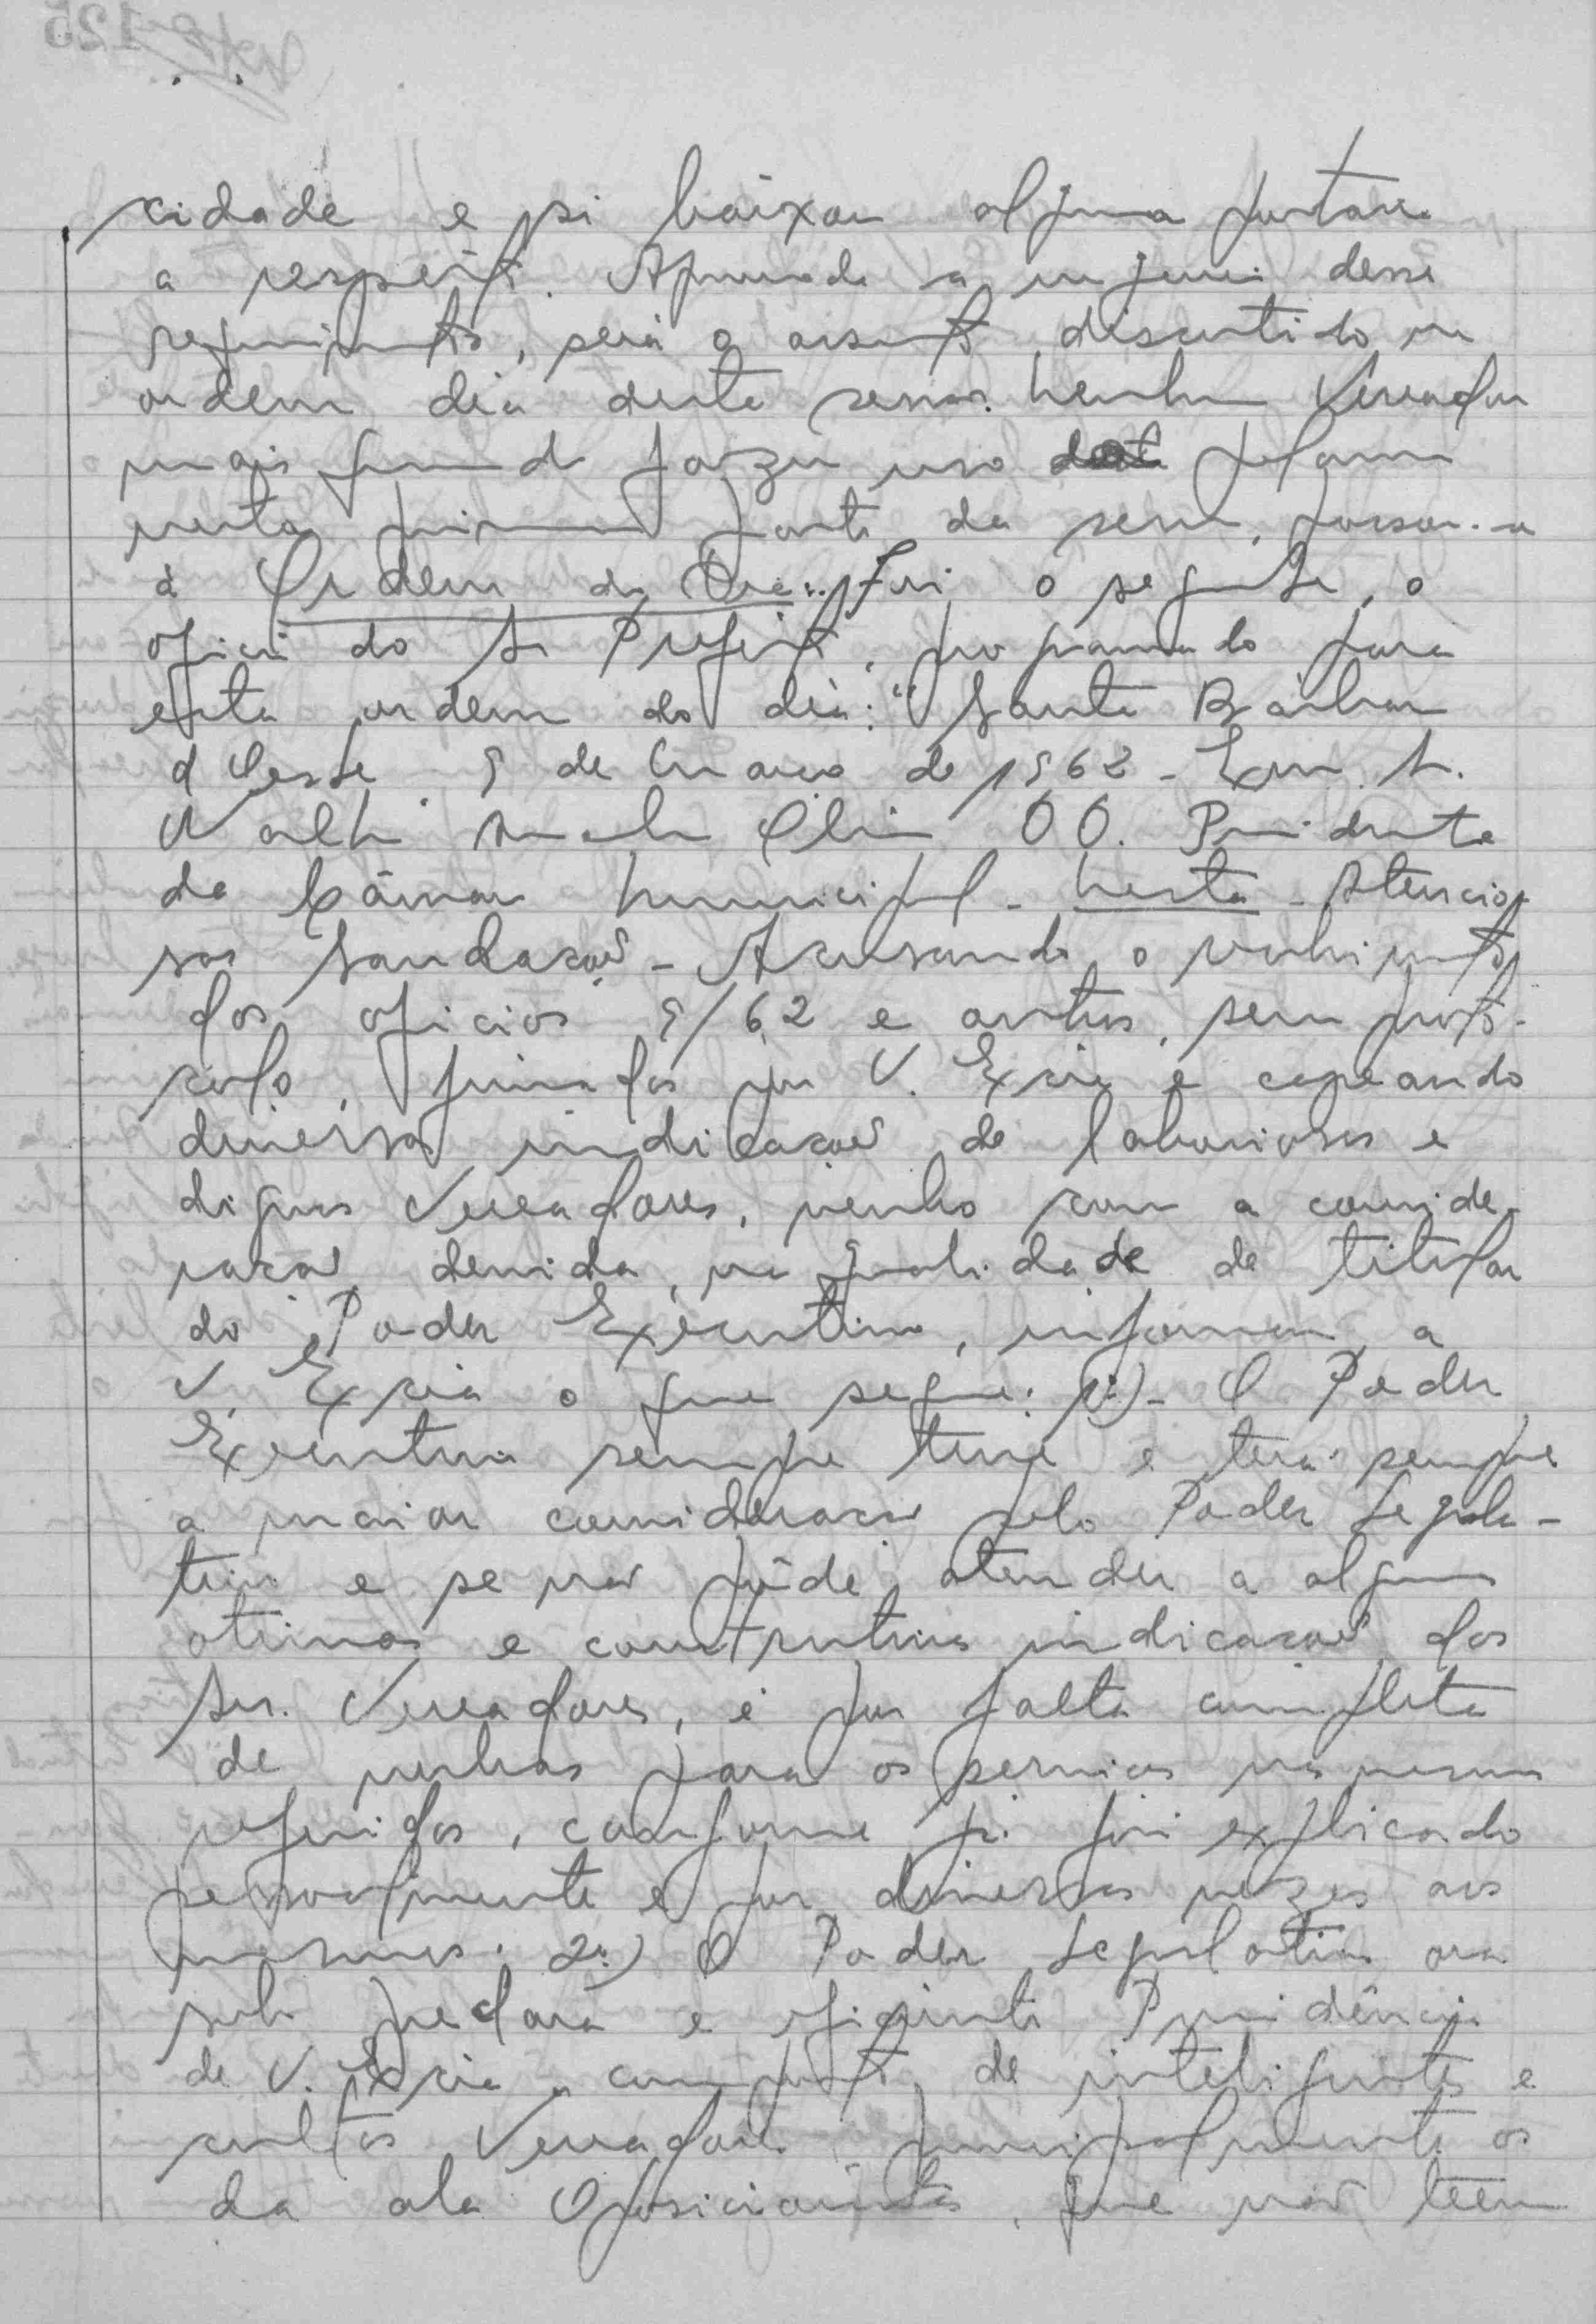 cidade e se baixou alguma portaria
a respeito. Aprovada a urgencia desse
requerimento, será o assunto discutido na
ordem dia desta sessão. Nenhum Vereador
mais querendo fazer uso da palavra
nesta primeira parte da sessão, passou-se
à Ordem do Dia:. Foi o seguinte, o
oficio do Sr Prefeito, programado para
esta ordem do dia: "Santa Bárbara
d'Oeste 9 de Março de 1962 - Exmo. Sr.
DD. Presidente
da Câmara Municipal - Nesta - Atencio-
sas Saudações - Acusando o recebimento
dos oficios 9/62 e outros, sem proto-
colo, firmados por V. Excia e capeando
diversas indicações de laboriosos e
dignos Vereadores, venho com a conside-
ração devida, na qualidade de titular
do Poder Executivo, informar a
V. Excia o que segue: 1º) - O Poder
Executivo sempre teve e terá sempre
a maior consideração pelo Poder Legisla-
tivo e se não pôde atender a algumas
otimas e construtivas indicações dos
Srs. Vereadores, é por falta completa
de verbas para os serviços nas mesmas
referidos, conforme já foi explicado
pessoalmente e por diversas vezes aos
mesmos. 2º) O Poder Legislativo ora
sob preclara e eficiente Presidência
de V. Excia e composto de inteligentes e
cultos Vereadores principalmente os
da ala Oposicionista, que não teem